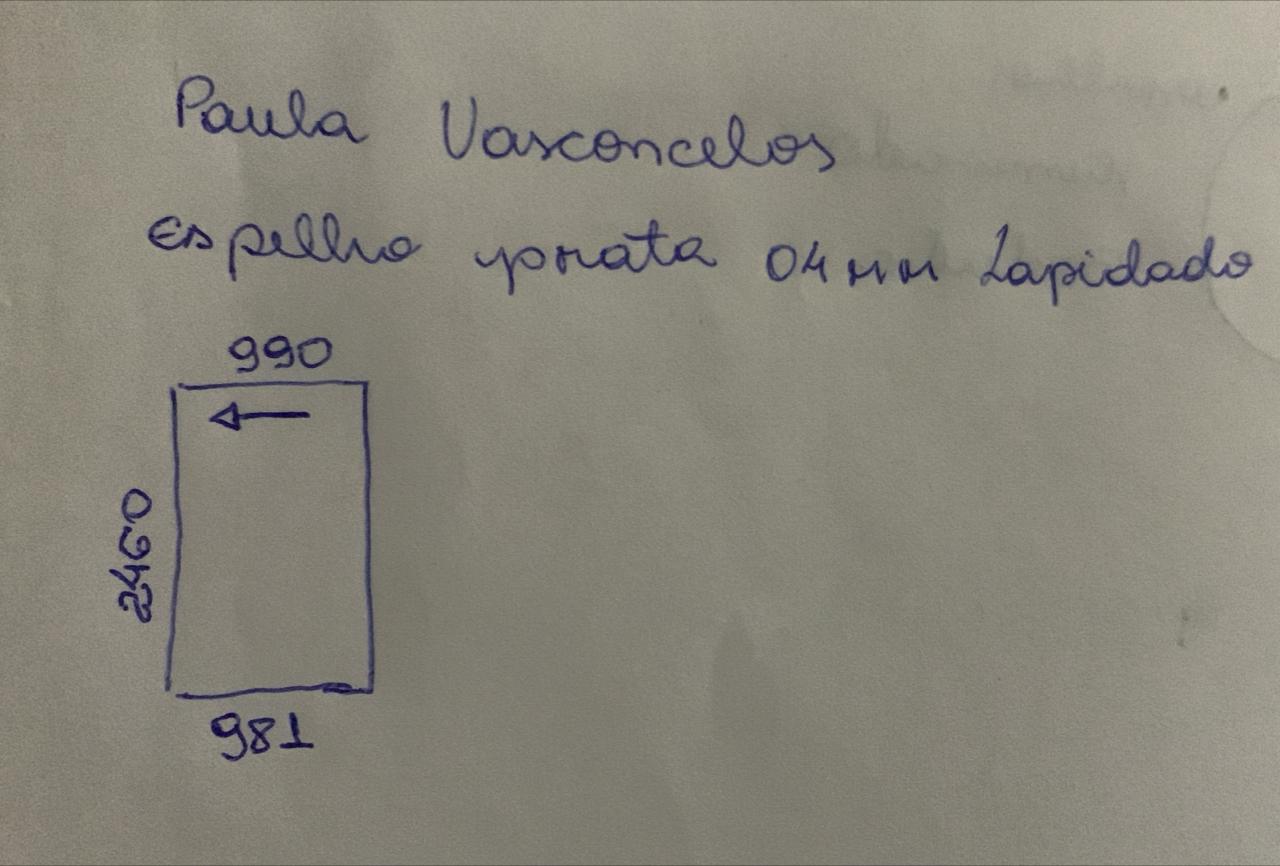 Paula Vasconcelos
Espelho prata 04mm Lapidado
990
2460
981